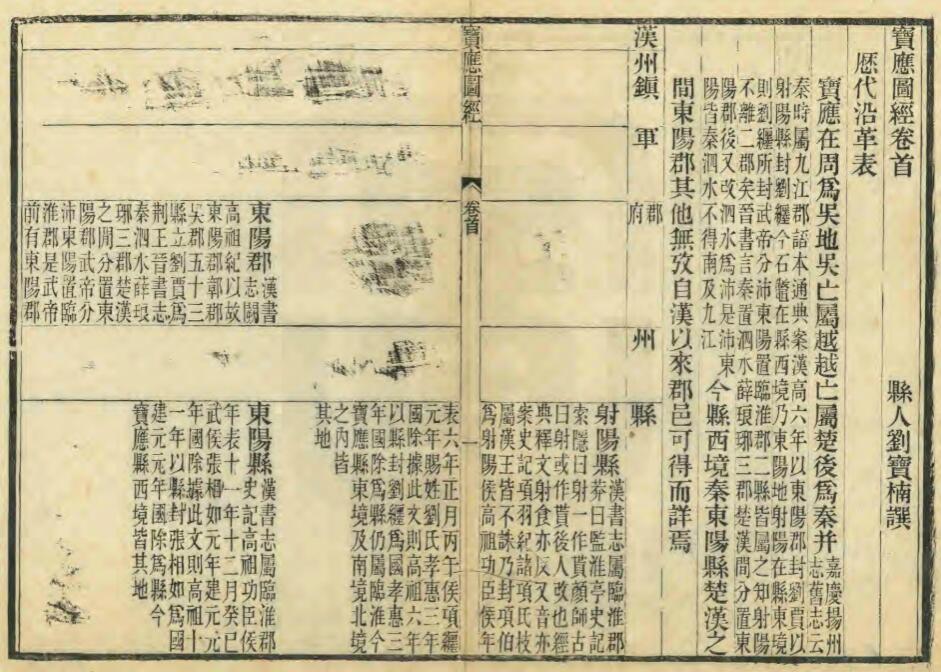 寶應圖經卷首　縣人劉寶楠譔
厯代沿革表
寶應在周爲吳地吳亡屬越越亡屬楚後爲秦并
嘉慶揚州
志舊志云
秦時屬九江郡語本通典案漢高六年以東陽郡封劉賈以
射陽縣封劉纏今石鼈在縣西境乃東陽地射陽在縣東境
則劉纏所封武帝分沛東陽置臨淮郡二縣皆屬之知射陽
不離二郡矣晉書言秦置泗水薛琅琊三郡楚漢間分置東
陽郡後又改泗水爲沛是沛東
陽皆秦泗水不得南及九江
今縣西境秦東陽縣楚漢之
間東陽郡其他無攷自漢以來郡邑可得而詳焉
漢州鎮
軍
郡府
州
縣
射陽縣
漢書志屬臨淮郡
莽曰監淮亭史記
索隱曰射一作貰顏師古
曰射或作貰後人改也經
典釋文射食亦反又音亦
案史記項羽紀諸項氏枝
屬漢王皆不誅乃封項伯
爲射陽侯高祖功臣侯年
寶應圖經
卷首
一
表六年正月丙午侯項纏
元年賜姓劉氏孝惠三年
國除據此文則高祖六年
以縣封劉纏爲國孝惠三
年國除爲縣仍屬臨淮今
寶應縣東境及南境北境
之內皆
其地
東陽郡
漢書
志闕
高祖紀以故
東陽郡鄣郡
吳郡五十三
縣立劉賈爲
荆王晉書志
秦泗水薛琅
琊三郡楚漢
之閒分置東
陽郡武帝分
沛東陽置臨
淮郡是武帝
前有東陽郡
東陽縣
漢書志屬臨淮郡
史記高祖功臣侯
年表十一年十二月癸巳
武侯張相如元年建元元
年國除據此文則高祖十
一年以縣封張相如爲國
建元元年國除爲縣今
寶應縣西境皆其地